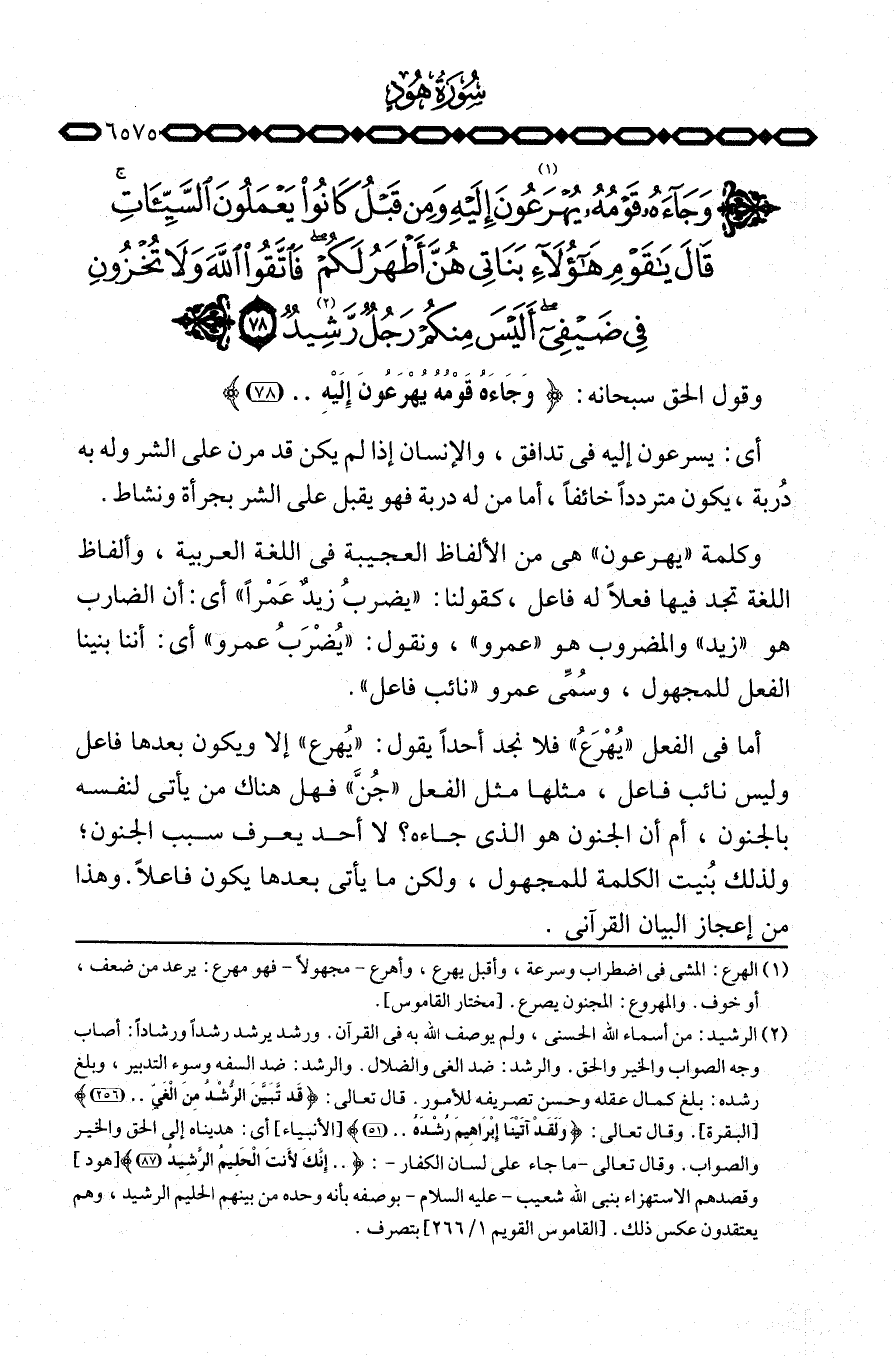 سُورَةُ هُودٍ
٦٥٧٥
وَجَآءَهُۥ قَوْمُهُۥ يُهْرَعُونَ (١) إِلَيْهِ وَمِن قَبْلُ كَانُوا۟ يَعْمَلُونَ ٱلسَّيِّـَٔاتِ ۚ
قَالَ يَـٰقَوْمِ هَـٰٓؤُلَآءِ بَنَاتِى هُنَّ أَطْهَرُ لَكُمْ ۖ فَٱتَّقُوا۟ ٱللَّهَ وَلَا تُخْزُونِ
فِى ضَيْفِىٓ ۖ أَلَيْسَ مِنكُمْ رَجُلٌ رَّشِيدٌ (٢) ٧٨
وقول الحق سبحانه : ﴿ وَجَاءَهُ قَوْمُهُ يُهْرَعُونَ إِلَيْهِ .. (٧٨) ﴾
أى : يسرعون إليه فى تدافق ، والإنسان إذا لم يكن قد مرن على الشر وله به
دُربة ، يكون متردداً خائفاً ، أما من له دربة فهو يقبل على الشر بجرأة ونشاط .
وكلمة «يهرعون» هى من الألفاظ العجيبة فى اللغة العربية ، وألفاظ
اللغة تجد فيها فعلاً له فاعل ، كقولنا : «يضربُ زيدٌ عَمْراً» أى : أن الضارب
هو «زيد» والمضروب هو «عمرو» ، ونقول : «يُضْرَبُ عمرو» أى : أننا بنينا
الفعل للمجهول ، وسُمِّى عمرو «نائب فاعل» .
أما فى الفعل «يُهْرَعُ» فلا نجد أحداً يقول : «يُهرع» إلا ويكون بعدها فاعل
وليس نائب فاعل ، مثلها مثل الفعل «جُنَّ» فهل هناك من يأتى لنفسه
بالجنون ، أم أن الجنون هو الذى جاءه؟ لا أحد يعرف سبب الجنون ؛
ولذلك بُنيت الكلمة للمجهول ، ولكن ما يأتى بعدها يكون فاعلاً . وهذا
من إعجاز البيان القرآنى .
(١) الهرع : المشى فى اضطراب وسرعة ، وأقبل يهرع ، وأهرع - مجهولاً - فهو مهرع : يرعد من ضعف ،
أو خوف . والمهروع : المجنون يصرع . [مختار القاموس] .
(٢) الرشيد : من أسماء الله الحسنى ، ولم يوصف الله به فى القرآن . ورشد يرشد رشداً ورشاداً : أصاب
وجه الصواب والخير والحق . والرشد : ضد الغى والضلال . والرشد : ضد السفه وسوء التدبير ، وبلغ
رشده : بلغ كمال عقله وحسن تصريفه للأمور . قال تعالى : ﴿ قَد تَّبَيَّنَ الرُّشْدُ مِنَ الْغَيِّ .. (٢٥٦) ﴾
[البقرة] . وقال تعالى : ﴿ وَلَقَدْ آتَيْنَا إِبْرَاهِيمَ رُشْدَهُ .. (٥١) ﴾ [الأنبياء] أى : هديناه إلى الحق والخير
والصواب . وقال تعالى -ما جاء على لسان الكفار - : ﴿ .. إِنَّكَ لَأَنتَ الْحَلِيمُ الرَّشِيدُ (٨٧) ﴾ [هود]
وقصدهم الاستهزاء بنبى الله شعيب - عليه السلام - بوصفه بأنه وحده من بينهم الحليم الرشيد ، وهم
يعتقدون عكس ذلك . [القاموس القويم ١/ ٢٦٦] بتصرف .